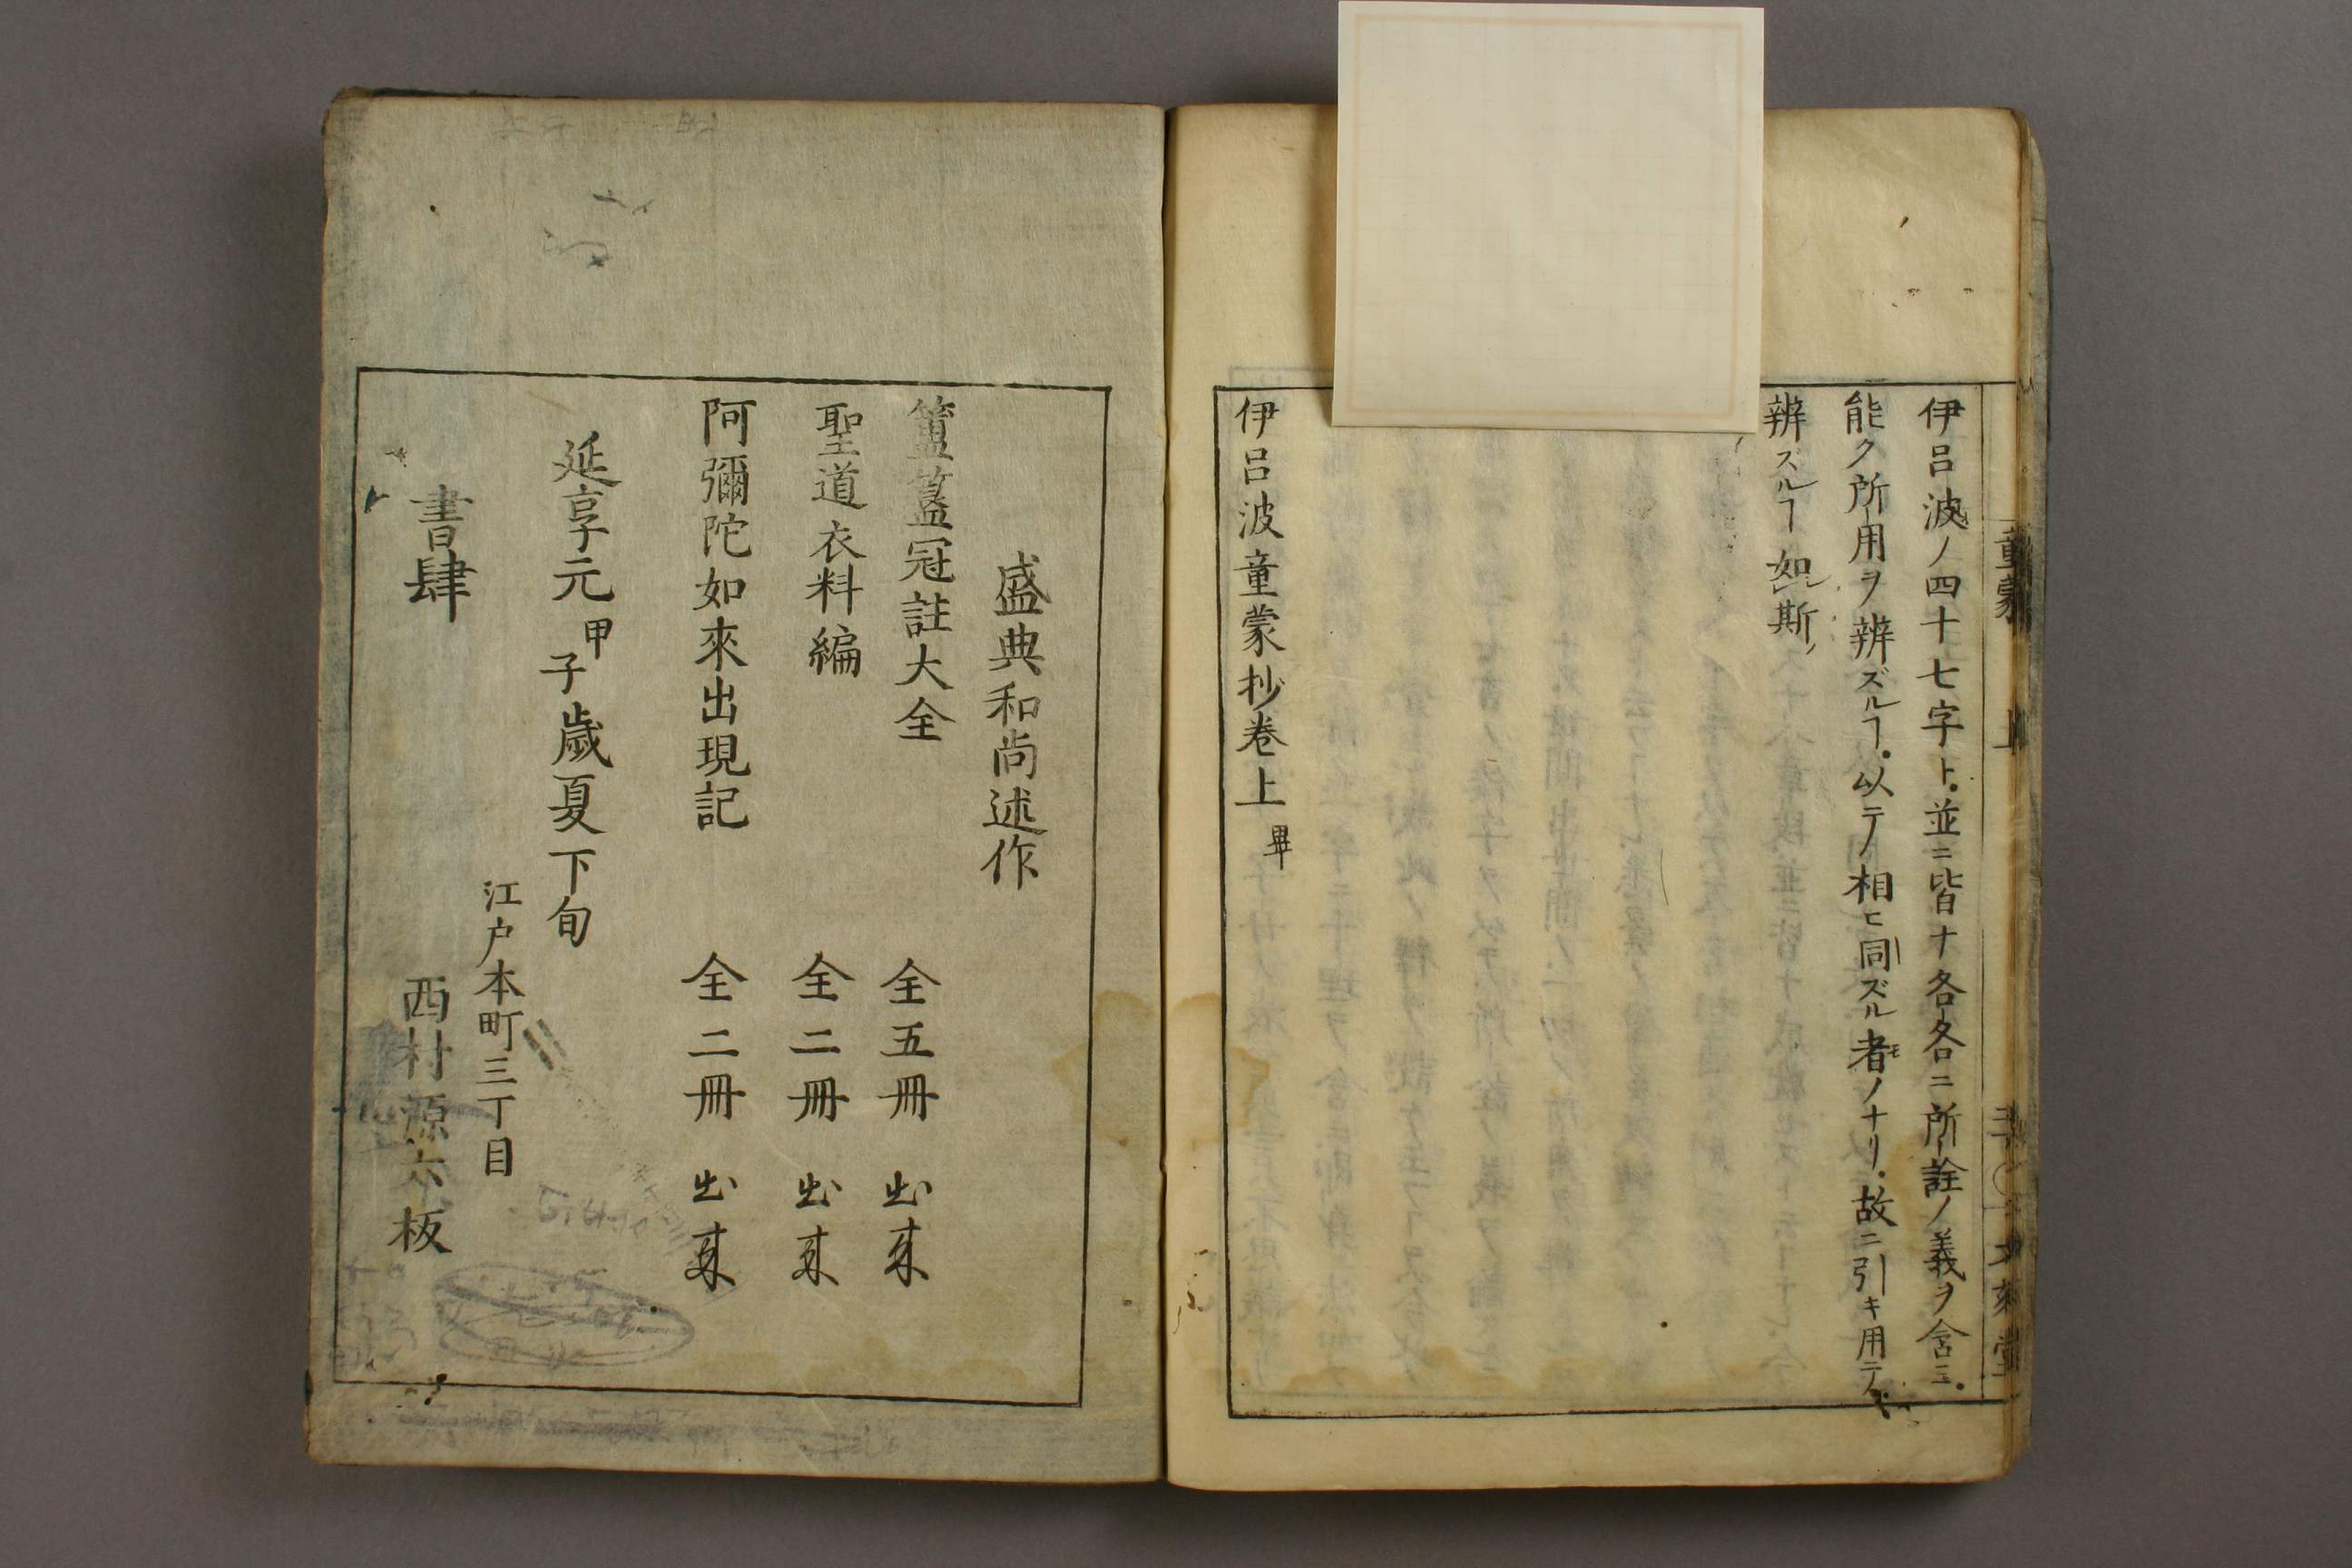 伊呂波ノ四十七字ト並ニ皆ナ各各ニ所詮ノ義ヲ含ミ
能ク所用ヲ辨ズルヿ以テノ相ヒ同ズル者ノナリ故ニ引キ用テ
辨スルヿ如斯
伊呂波童蒙抄卷上畢
盛典和尚述作
簠簋冠註大全 全五冊 出来
聖道衣料編 全二冊 出来
阿彌陀如來出現記 全二冊 出来
延享元甲子歳夏下旬
江戸本町三丁目
書肆 西村源六板